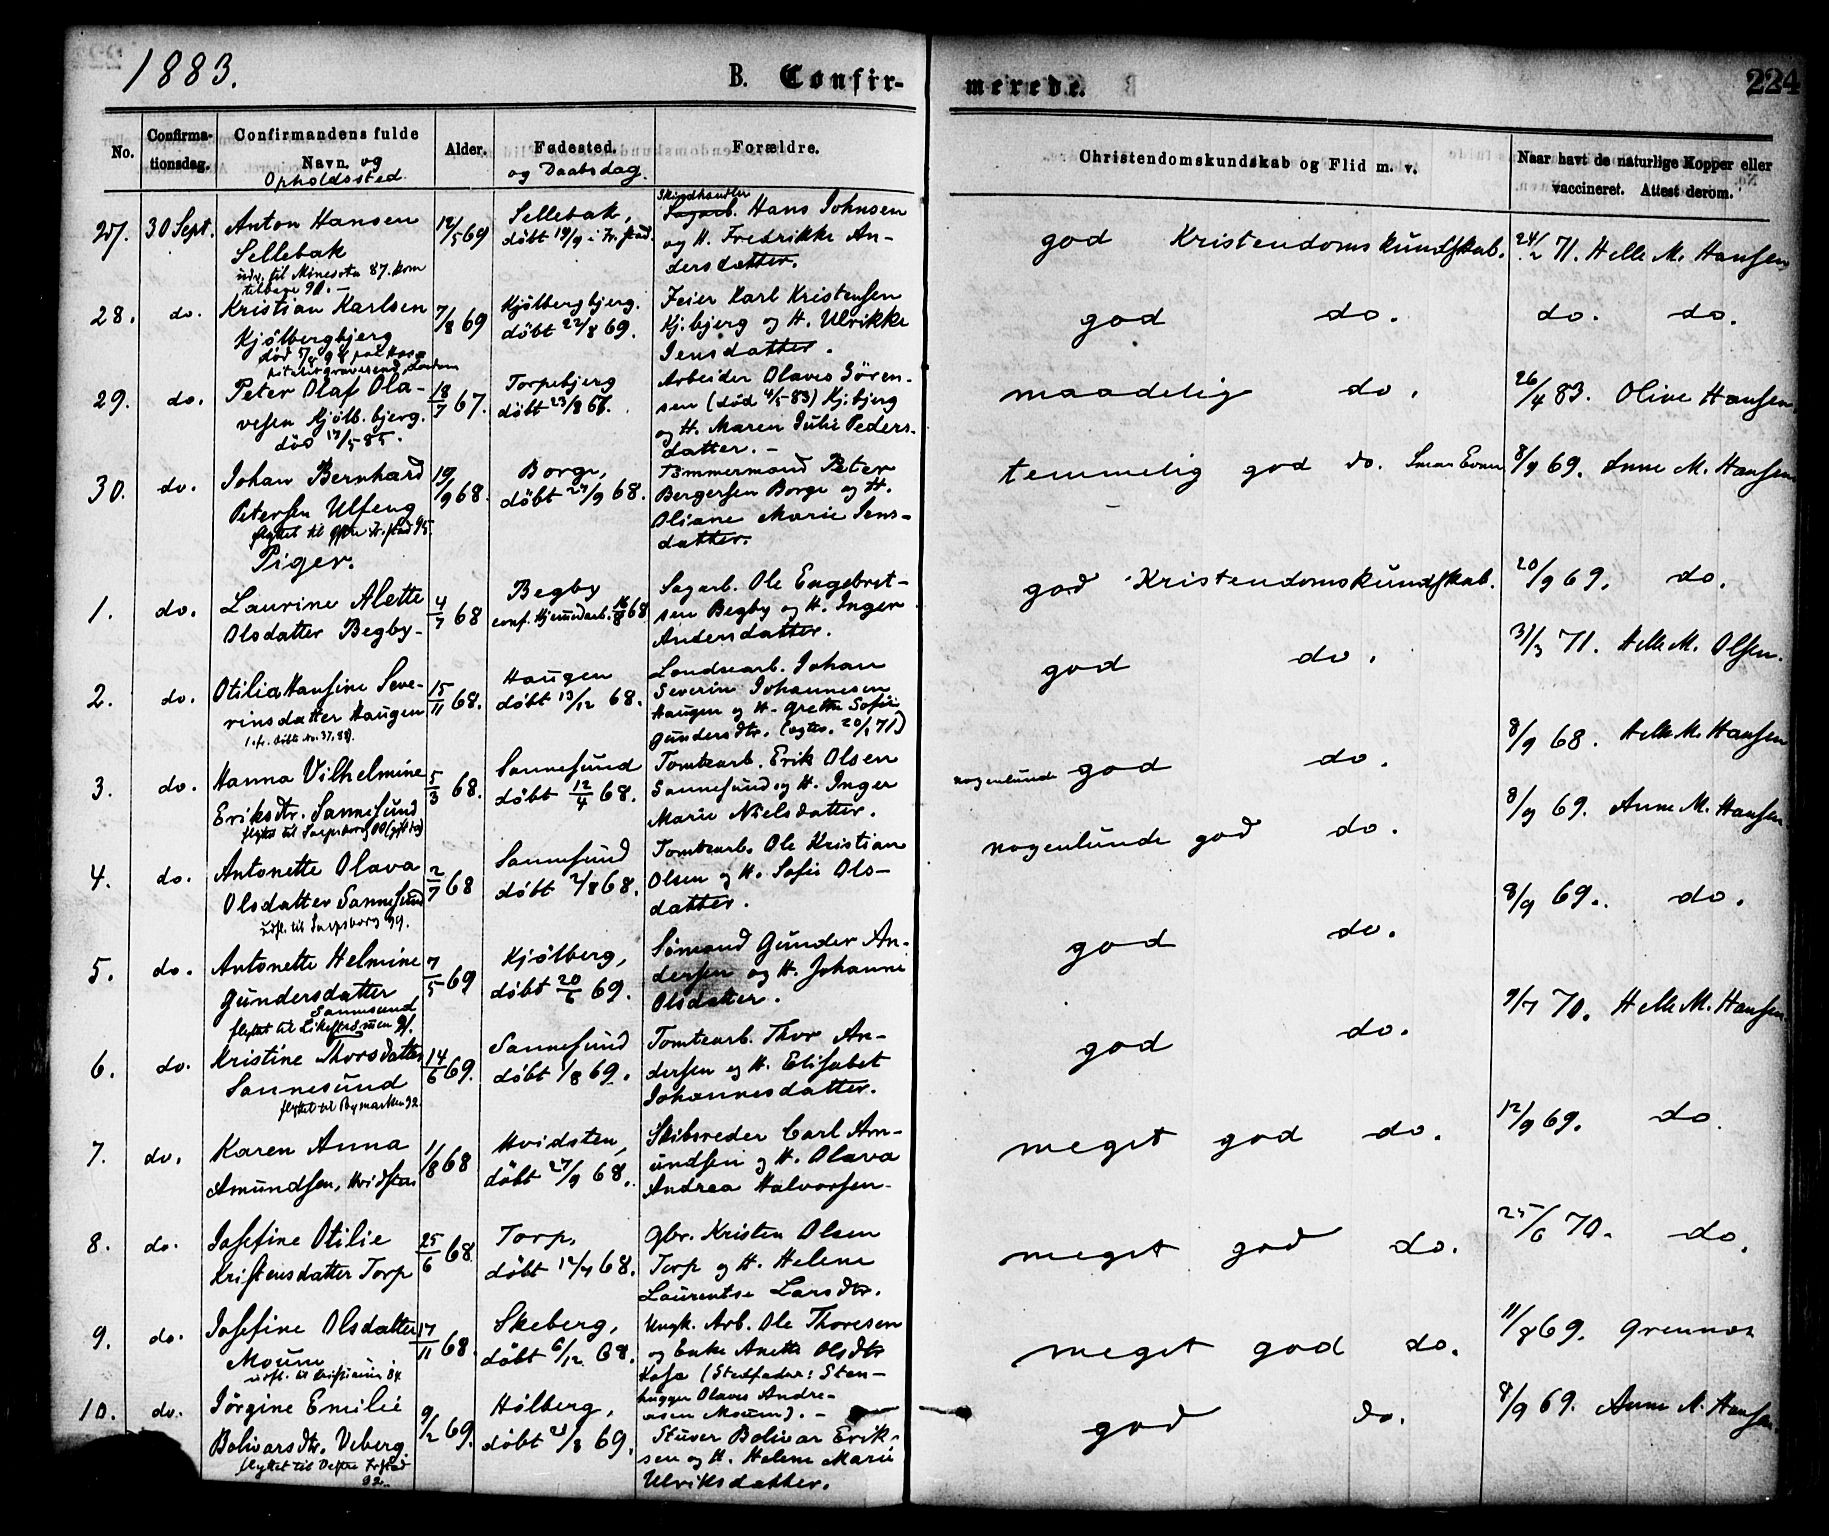 1883.
B. Confir-
merede.
224
No.
Confirma-
tionsdag.
Confirmandens fulde
Navn. og
Opholdssted.
Alder.
Fødested.
og Daabsdag.
Forældre.
Christendomskundskab og Flid m. v.
Naar havt de naturlige Kopper eller
vaccineret. Attest derom.
27. 30 Sept. Anton Hansen
Sellebak
udv. til Minesota 87. kom
tilbage 90. -
12/5 69
Sellebak,
døbt 19/9 i Fr.stad.
Skindhandler
Sagarb. Hans Johnsen
og H. Fredrikke An-
dersdatter.
god Kristendomskundskab.
24/2 71. Helle M. Hansen
28. do. Kristian Karlsen
Kjølbergbjerg
7/8 69
Kjølbergbjerg.
døbt 22/8 69.
Feier Karl Kristensen
Kj.bjerg og H. Ulrikke
Jensdatter.
god do.
do. do.
29. do. Peter Olaf Ola-
vesen Kjølb.bjerg.
død 13/5 85.
18/7 67.
Torpebjerg
døbt 23/8
Arbeider Olaves Sören-
sen (død 4/5 83) Kj.bjerg
og H. Maren Julie Peders-
datter. -
maadelig do.
26/4 83. Olive Hansen.
30. do. Johan Bernhard
Petersen Ulfeng
flyttet til Fr.stad 95.
19/9 68.
Borge,
døbt 27/9 68.
Tømmermand Peter
Bergersen Borge og H.
Oliane Marie Jens-
datter.
temmelig god do. Smaa Evner
8/9 69. Anne M. Hansen
Piger.
1. do. Laurine Alette
Olsdatter Begby-
4/7 68
Begby
68
Sagarb. Ole Engebret-
sen Begby og H. Inger
Andersdatter.
god Kristendomskundskab.
20/9 69. do.
2. do. Otilia Hansine Seve-
rinsdatter Haugen
15/11 68.
Haugen
døbt 13/12 68.
Landsearb. Johan
Severin Johannesen
Haugen og H. Grethe Sofie
Gundersdtr.
god do.
31/3 71. Helle M. Olsen.
3. do. Hanna Vilhelmine
Eriksdtr. Sannesund
flyttet til Sarpsborg 00 (gift)
5/3 68.
Sannesund
døbt 12/4 68.
Tomtearb. Erik Olsen
Sannesund og H. Inger
Marie Nielsdatter.
nogenlunde god do.
8/9 68. Helle M. Hansen
4. do. Antonette Olava
Olsdatter Sannesund
udfl. til Sarpsborg 99.
2/7 68
Sannesund
døbt 2/8 68.
Tomtearb. Ole Kristian
Olsen og H. Sofie Ols-
datter.
nogenlunde god do.
8/9 69. Anne M. Hansen.
5. do. Antonette Helmine
Gundersdatter
Sannesund
7/5 69
Kjølberg,
døbt 20/6 69.
Sömand Gunder An-
dersen og H. Johanne
Olsdatter.
god do.
8/9 69. do.
6. do. Kristine Thorsdatter
Sannesund
flyttet til Bymarken 92.
14/6 69.
Sannesund
døbt 1/8 69.
Tomtearb. Thor An-
dersen og H. Elisabet
Johannesdatter.
god do.
9/7 70. Helle M. Hansen.
7. do. Karen Anna
Amundsen, Hvidsten
1/8 68
Hvidsten,
døbt 27/9 68.
Skibsreder Carl Am-
undsen og H. Olava
Andrea Halvorsen.
meget god do.
12/9 69. do.
8. do. Josefine Otilie
Kristensdatter Torp
25/6 68.
Torp.
døbt 12/7 68.
Gbr. Kristen Olsen
Torp og H. Helene
Laurentse Larsdtr.
meget god do.
25/6 70. do.
9. do. Josefine Olsdatter
Moum
udfl. til Kristiania 84.
17/11 68.
Skeberg,
døbt 6/12 68.
Ungk. Arb. Ole Thoresen
og Enke Anette Olsdtr
(Stedfader: Sten-
hugger Olaves Andre-
asen Moum). -
meget god do.
11/8 69. Grennes
10. do. Jörgine Emilie
Bolivarsdtr. Veberg.
flyttet til Vestre Frstad
92.
9/2 69.
Hölberg,
døbt 21/3 69.
Stuver Bolivar Erik-
sen og H. Helene Marie
Ulriksdatter.
god do.
8/9 69. Anne M. Hansen.